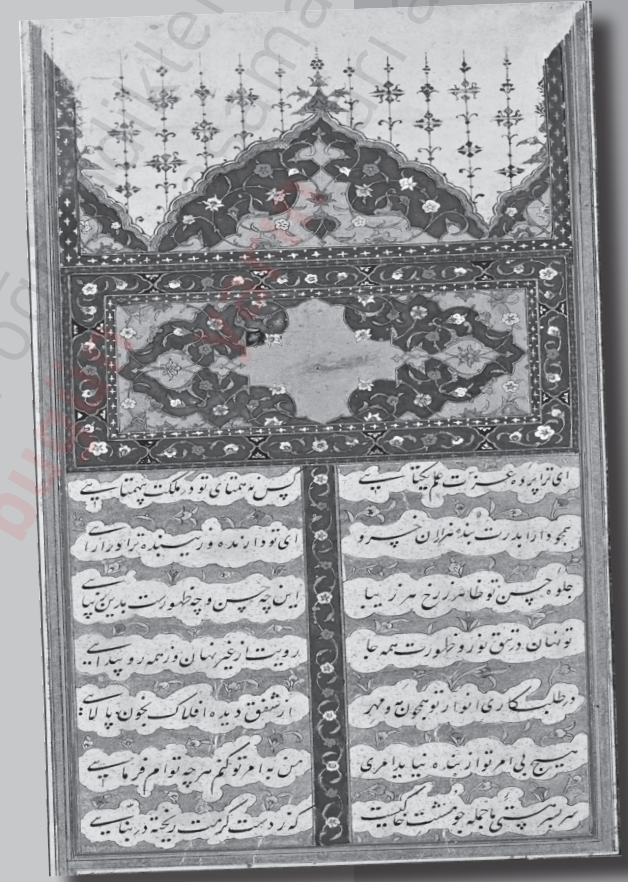 ای ترا پرده عزت علم یکتایی کس نه همتای تو در ملکت بی همتایی
همچو دارا بدرت بنده هزاران خسرو ای تو دارنده و زیبنده ترا دارایی
جلوه حسن تو ظاهر ز رخ هر زیبا این چه حسن و چه ظهورست بدین زیبایی
تو نهان در تتق نور و ظهورت همه جا رویت از غیر نهان وز همه رو پیدایی
در طلبکاری انوار تو همچون مه و مهر از شفق دیده افلاک بخون پالایی
هیچ بی امر تو از بنده نیاید امری من به امر تو کنم هر چه توام فرمایی
سر بسر هستی ما جمله چو مشت خاکیست که ز دست کرمت ریخته در بنایی
bugün